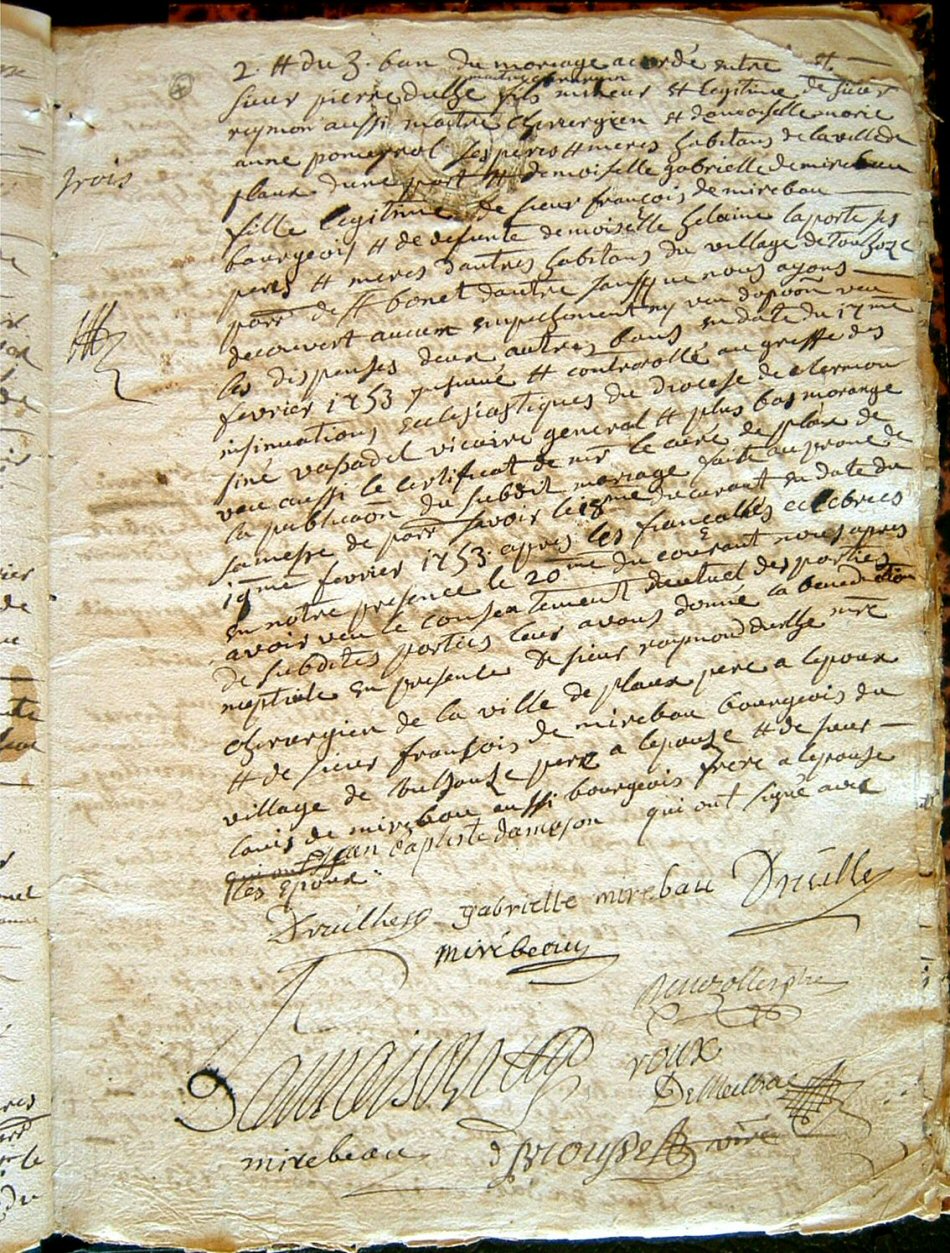 2. et du 3. ban du mariage acordé entre
maitre chirurgien
sieur pierre fils mineur et legitime de sieur
reymon aussi maitre chirurgien et demoiselle marie
anne ses peres et meres habitans de la ville de
trois
plaux d'une part et demoiselle gabrielle de mirebau
fille legitime de sieur françois de mirebau
bourgeois et de defunte demoiselle helaine laporte ses
peres et meres d'autres habitans du village de
parr de st bonet d'autre sans que nous ayons
decouvert aucun empechement ny veu
les dispenses deux autres bans en date du 17me
fevrier 1753 et controllé au greffe des
insinuations ecclesiastiques du diocese de clermon
siné vassadel vicaire general et plus bas morange
veu aussi le certificat de mr le curé de plaux de
la publication du subdit mariage faite au prone de
sa messe de parr savoir le 18me du courant en date du
19me fevrier 1753. apres les fiancalles celebrées
en notre presence le 20me du courant nous apres
avoir veu le consentement mutuel des parties
de subdites parties leur avons donné la benediction
nuptiale en presence de sieur raymond mtre
chirurgien de la ville de plaux pere a lepoux
et de sieur fransois de mirebau bourgeois du
village de pere a lepouze et de sieur
louis de mirebau aussi bourgeois frere a lepouse
jean baptiste damaison qui ont signé avec
les epoux.
gabrielle mirebau
mirébeau
Damaison
roux
mirebeau